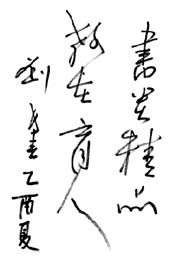 書精品
教在育人
劉乙酉夏